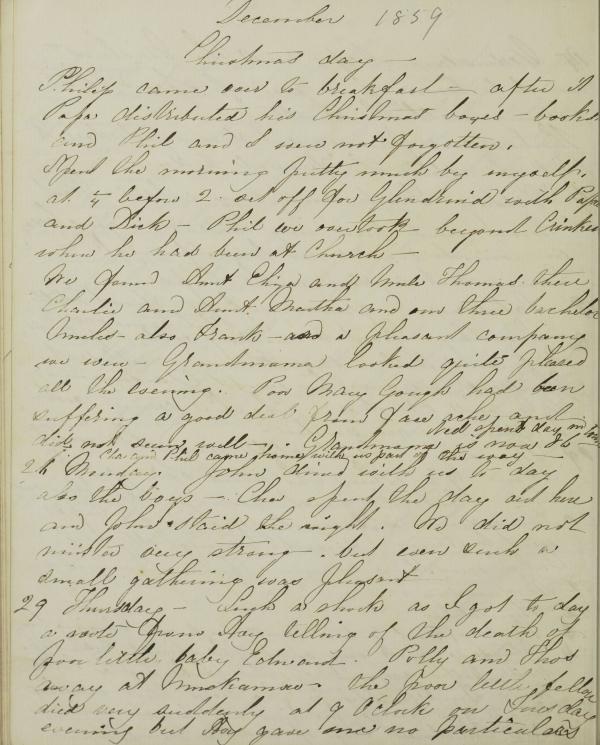 December 1859
Christmas day —
Philip came over to breakfast — after it
Papa distributed his Christmas boxes — books
and Phil and I were not forgotten.
Spent the morning pretty much by myself.
at ¼ before 2 set off for Glendrind with Papa
and Dick — Phil we overtook beyond Crinkes
where he had been at Church —
We found Aunt Eliza and Uncle Thomas there
Charlie and Aunt Martha and our three bachelor
Uncles — also Frank — and a pleasant company
we were — Grandmama looked quite pleased
all the evening. Poor Mary Gough had been
suffering a good deal from face ache and
did not seem well — . Grandmama is now 86 — Ned spent day in town
Cha and Phil came home with us part of the way —
26 Monday. John dined with us to day
also the boys — Cha spent the day out here
and John staid the night. We did not
muster very strong. but even such a
small gathering was pleasant
29 Thursday — Such a shock as I got to day
a note from Hay telling of the death of
poor little baby Edward. Polly and Thos
away at the poor little fellow
died very suddenly at 9 O'Clock on Tuesday
evening but Hay gave me no particulars